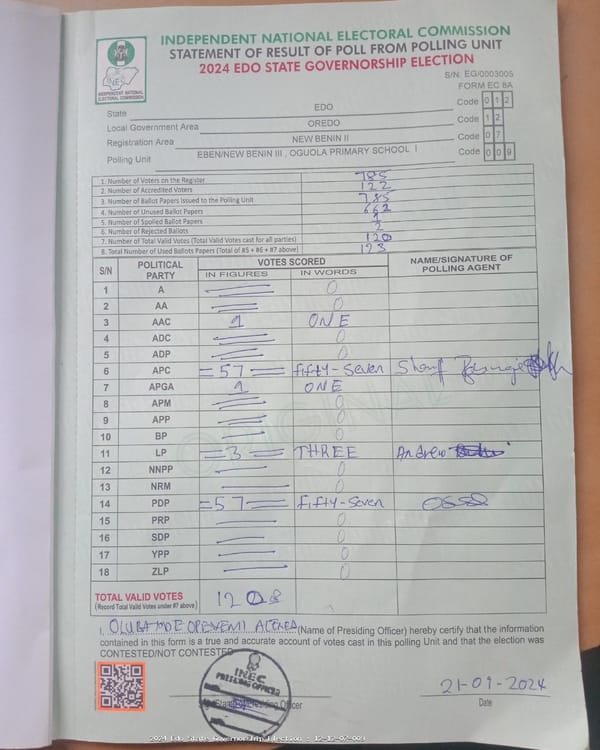 INDEPENDENT NATIONAL ELECTORAL COMMISSION
STATEMENT OF RESULT OF POLL FROM POLLING UNIT
2024 EDO STATE GOVERNORSHIP ELECTION
INDEPENDENT NATIONAL ELECTORAL COMMISSION
S/N. EG/0003005
FORM EC 8A
State EDO Code 0 1 2
Local Government Area OREDO Code 1 2
Registration Area NEW BENIN II Code 0 7
Polling Unit EBEN/NEW BENIN III , OGUOLA PRIMARY SCHOOL I Code 0 0 9
1. Number of Voters on the Register 785
2. Number of Accredited Voters 122
3. Number of Ballot Papers Issued to the Polling Unit 785
4. Number of Unused Ballot Papers 662
5. Number of Spoiled Ballot Papers 1
6. Number of Rejected Ballots 2
7. Number of Total Valid Votes (Total Valid Votes cast for all parties) 120
8. Total Number of Used Ballots Papers (Total of #5 + #6 + #7 above) 123
S/N POLITICAL PARTY VOTES SCORED NAME/SIGNATURE OF POLLING AGENT
IN FIGURES IN WORDS
1 A 0
2 AA 0
3 AAC 1 ONE
4 ADC 0
5 ADP 0
6 APC =57= fifty-Seven
7 APGA 1 ONE
8 APM 0
9 APP 0
10 BP 0
11 LP =3= THREE Andrew
12 NNPP 0
13 NRM 0
14 PDP =57= fifty-Seven
15 PRP 0
16 SDP 0
17 YPP 0
18 ZLP 0
TOTAL VALID VOTES
(Record Total Valid Votes under #7 above)
I, (Name of Presiding Officer) hereby certify that the information
contained in this form is a true and accurate account of votes cast in this polling Unit and that the election was
CONTESTED/NOT CONTESTED
INEC
PRESIDING OFFICER
21-09-2024
Date
2024 Edo State Governorship Election - 12-12-07-009